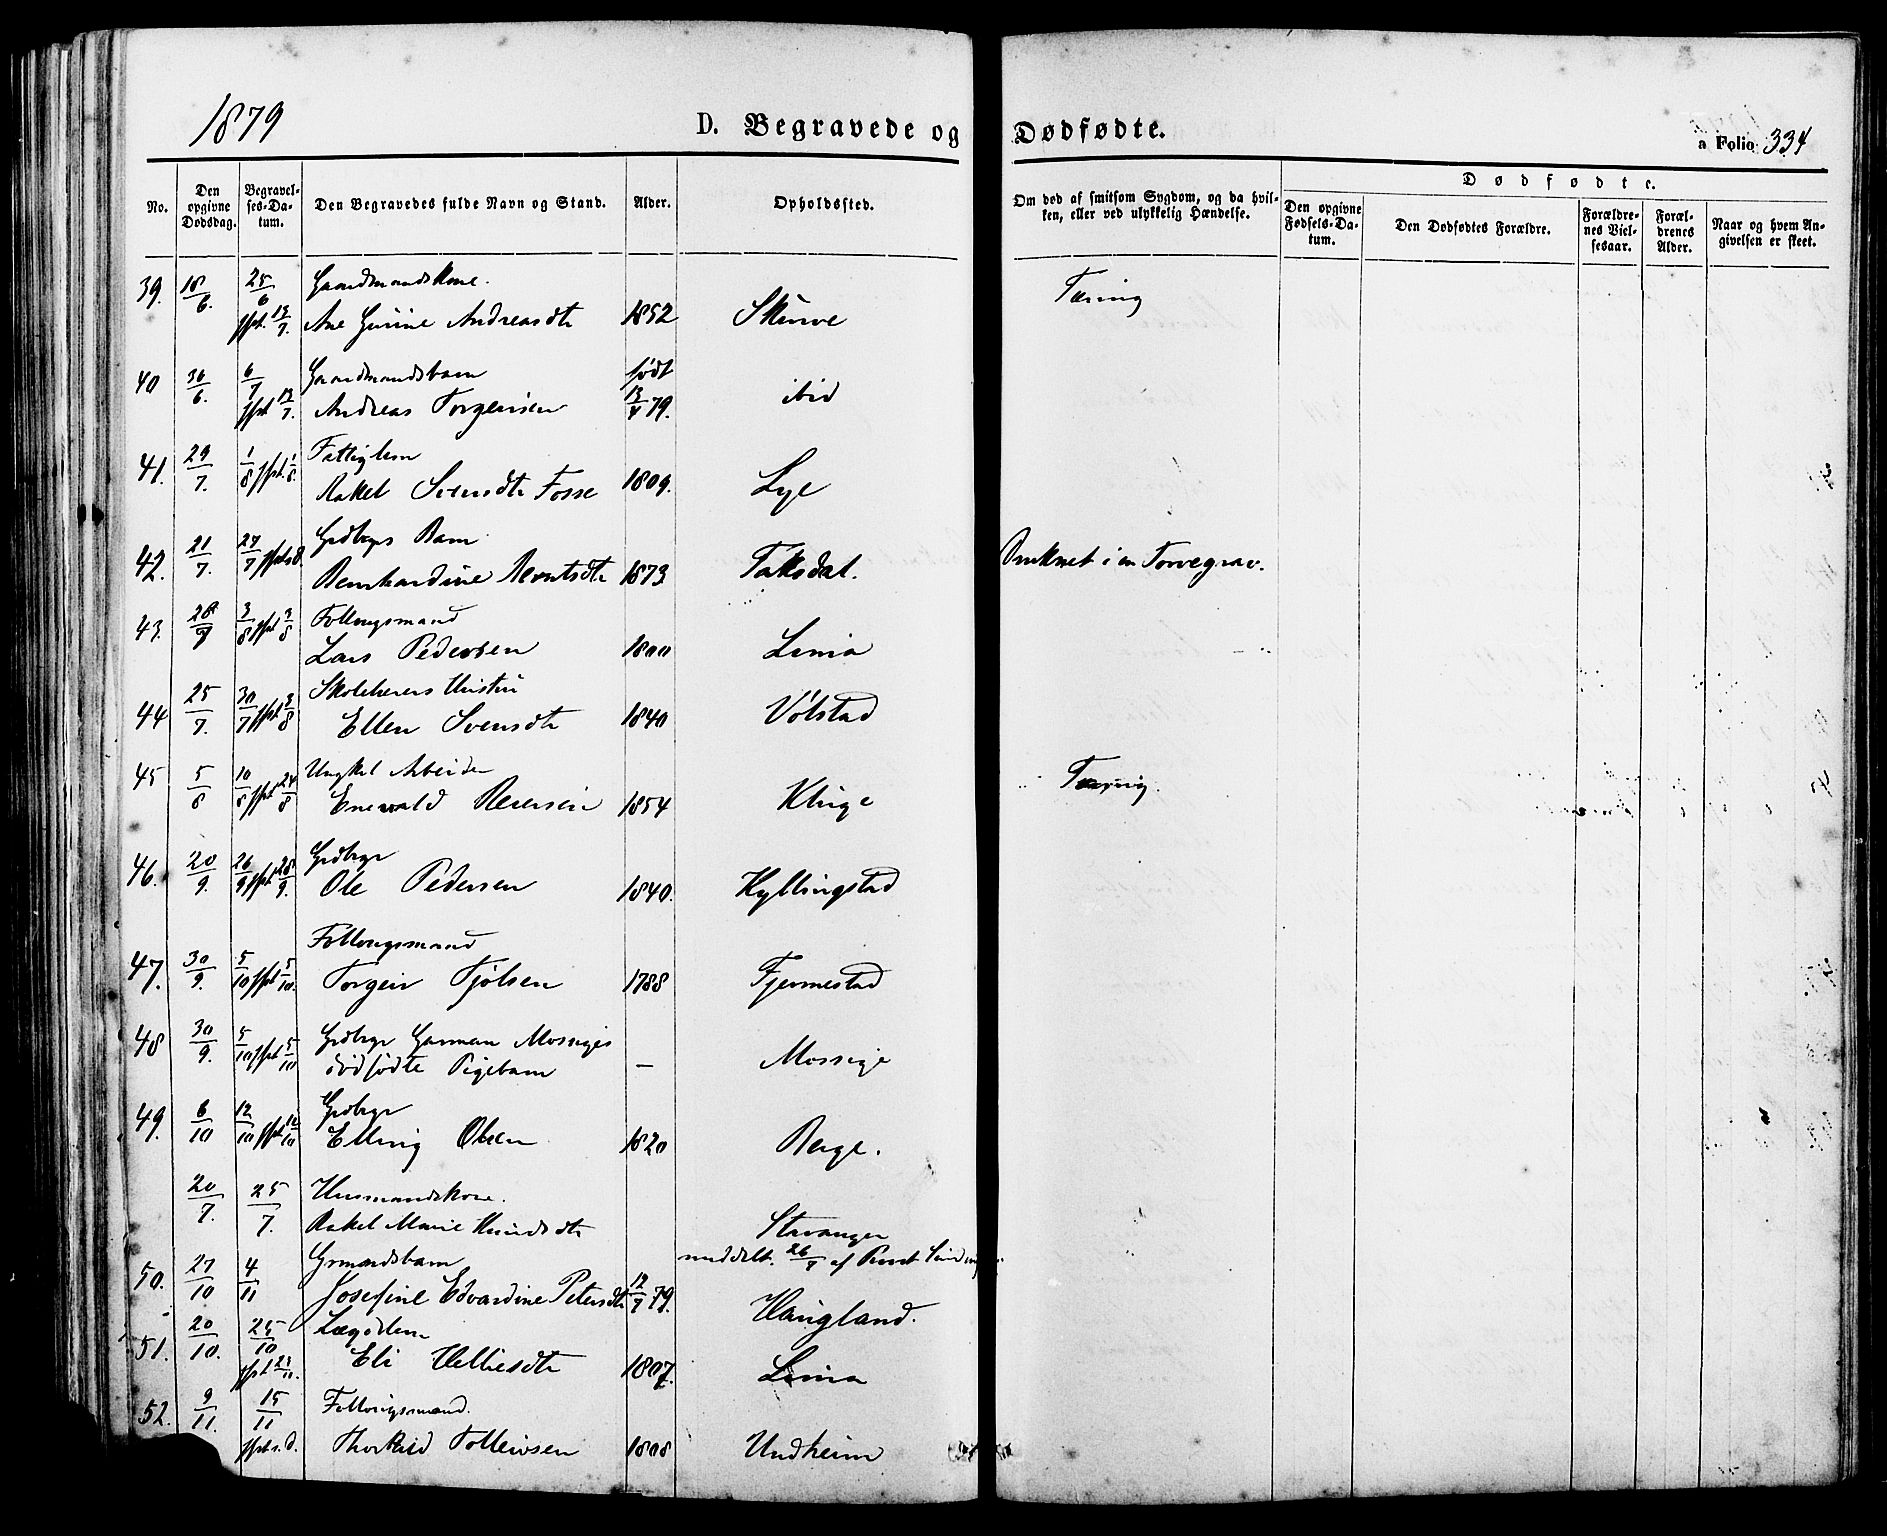 1879
D. Begravede og Dødfødte.
a Folio 334
No.
Den opgivne Dødsdag.
Begravelses-Datum.
Den Begravedes fulde Navn og Stand.
Alder.
Opholdssted.
Om død af smitsom Sygdom, og da hvilken, eller ved ulykkelig Hændelse.
Dødfødte.
Den opgivne Fødsels-Datum.
Den Dødfødtes Forældre.
Forældrenes Vielsesaar.
Forældrenes Alder.
Naar og hvem Angivelsen er skeet.
39. 18/6. 25/6 Gaardmandskone. Tæring
13/7. Ane Gurine Andreasdtr 1852 Skurve
40 30/6. 6/7 Gaardmandsbarn født
13/7. Andreas Torgersen 13/4 79. ibid
41. 29/7. 1/8 1/8. Fattiglem
Rakel Svensdtr Fosse 1809. Lye
42. 21/7. 27/7 Grdbrgs Barn
Bernhardine Berntsdtr 1873 Taksdal. Druknet i en Torvegrav.
43. 28/7 3/8 3/8 Follougsmand
Lars Pedersen 1800 Lima
44 25/7. 30/7 3/8 Skolelærers Hustru
Ellen Svensdtr 1840 Vølstad
45 5/8 10/8 24/8 Ungkl Arbeider Tæring
Enevald Reiersen 1854 Kluge
46. 20/9. 26/9 28/9. Grdbrgr
Ole Pedersen 1840. Kyllingstad
47. 30/9. 5/10 5/10. Follougsmand
Torgeir Tjølsen 1788 Fjermestad
48 30/9. 5/10 5/10 Grdbrgr Garman Mossiges
dødfødte Pigebarn — Mossige
49. 6/10 12/10 12/10 Grdbrgr
Elling Olsen 1820 Berge.
20/7. 25/7. Husmandskone.
Rakel Marie Knudsdtr Stavanger
meddelt. 26/7 af
50. 27/10 4/11 Grmandsbarn
Josefine Edvardine Petersdtr 12/7 79. Haugland.
51. 20/10. 25/10 Lægdslem
23/11. Eli Helliesdtr 1807. Lima
52. 9/11. 15/11 Follougsmand.
s. D. Thorkild Tolleivsen 1808 Undheim